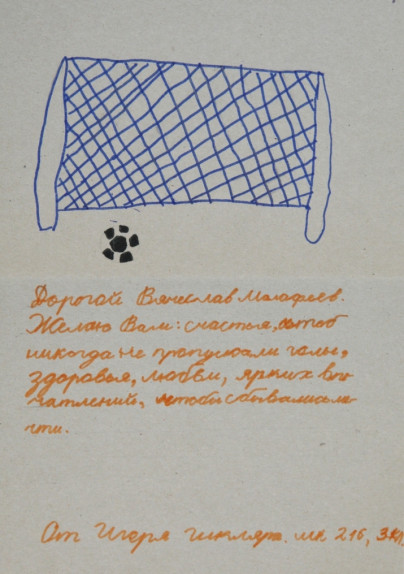 Дорогой Вячеслав Малафеев.
Желаю Вам: счастья, чтоб
никогда не пропускали голы,
здоровья, любви, ярких впе-
чатлений, чтобы сбывались ме-
чты.
От Игоря шк 216, 3 кл.